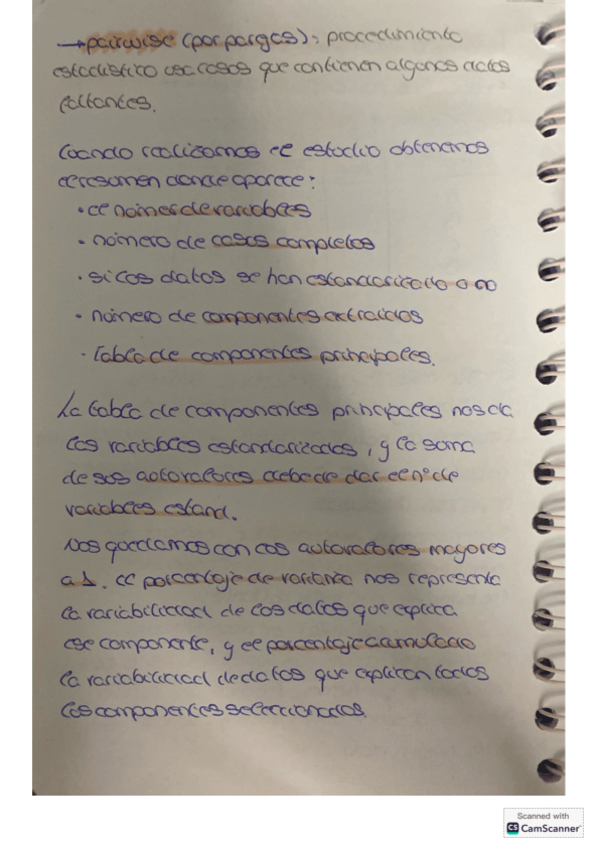 → pairwise (por pargas): procedimiento
estadístico usa casos que contienen algunos datos
faltantes.
Cuando realizamos el estudio obtenemos
el resumen donde aparece:
• el número de variables
• número de casos completos
• si los datos se han estandarizado o no
• número de componentes extraídos
• Tabla de componentes principales.
La tabla de componentes principales nos da
las variables estandarizadas, y la suma
de sus autovalores debe de dar el nº de
variables estand.
Nos quedamos con los autovalores mayores
a 1. El porcentaje de varianza nos representa
la variabilidad de los datos que explica
ese componente, y el porcentaje acumulado
la variabilidad de datos que explican todos
los componentes seleccionados.
Scanned with
CS CamScanner